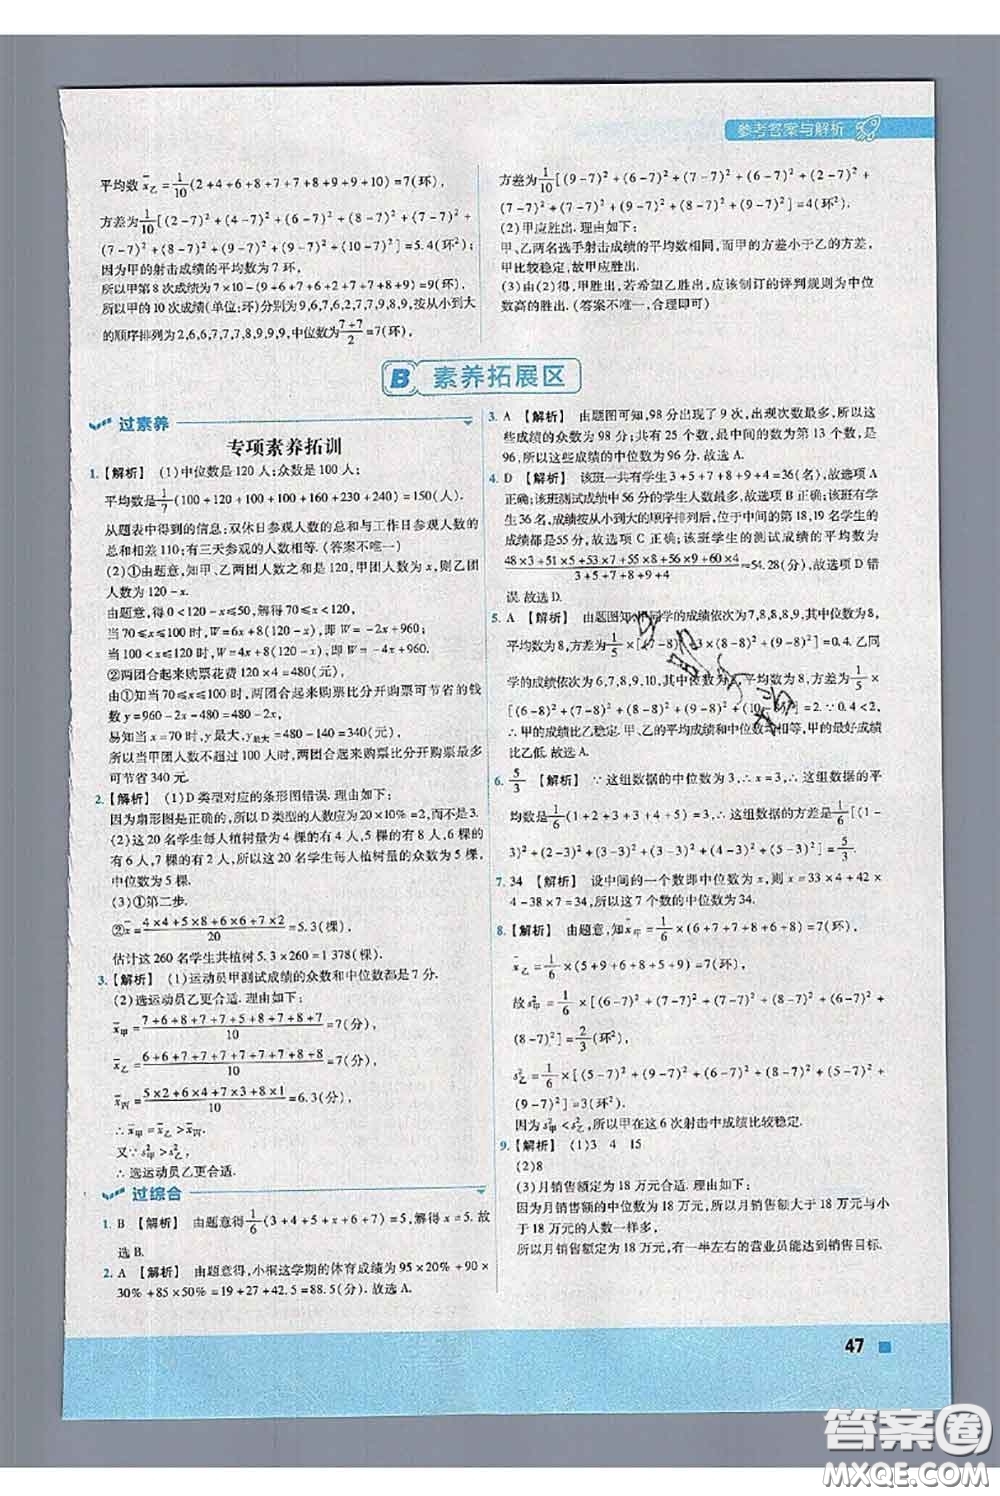 参考答案与解析
平均数x̄乙=1/10(2+4+6+8+7+7+8+9+9+10)=7(环),
方差为1/10[(2-7)²+(4-7)²+(6-7)²+(8-7)²+(7-7)²+
(7-7)²+(8-7)²+(9-7)²+(9-7)²+(10-7)²]=5.4(环²).
因为甲的射击成绩的平均数为7环,
所以甲第8次成绩为7×10-(9+6+7+6+2+7+7+8+9)=9(环).
所以甲的10次成绩(单位:环)分别为9,6,7,6,2,7,7,9,8,9,按从小到大
的顺序排列为2,6,6,7,7,7,8,9,9,9,中位数为(7+7)/2=7(环),
方差为1/10[(9-7)²+(6-7)²+(7-7)²+(6-7)²+(2-7)²+
(7-7)²+(7-7)²+(9-7)²+(8-7)²+(9-7)²]=4(环²).
(2)甲应胜出. 理由如下:
甲、乙两名选手射击成绩的平均数相同,而甲的方差小于乙的方差,
甲比较稳定,故甲应胜出.
(3)由(2)得,甲胜出,若希望乙胜出,应该制订的评判规则为中位
数高的胜出. (答案不唯一,合理即可)
B 素养拓展区
过素养
专项素养拓训
1.【解析】 (1)中位数是120人;众数是100人;
平均数是1/7(100+120+100+100+160+230+240)=150(人).
从题表中得到的信息:双休日参观人数的总和与工作日参观人数的
总和相差110;有三天参观的人数相等. (答案不唯一)
(2)①由题意,知甲、乙两团人数之和是120,甲团人数为x,则乙团
人数为120-x.
由题意,得0<120-x≤50,解得70≤x<120.
当70≤x≤100时,W=6x+8(120-x),即W=-2x+960;
当100<x<120时,W=4x+8(120-x),即W=-4x+960.
②两团合起来购票花费120×4=480(元),
由①知当70≤x≤100时,两团合起来购票比分开购票可节省的钱
数y=960-2x-480=480-2x(元),
易知当x=70时,y最大=480-140=340(元),
所以当甲团人数不超过100时,两团合起来购票比分开购票最多
可节省340元.
2.【解析】 (1)D类型对应的条形图错误. 理由如下:
因为扇形图是正确的,所以D类型的人数应为20×10%=2,而不是3.
(2)这20名学生每人植树量为4棵的有4人,5棵的有8人,6棵
的有6人,7棵的有2人,所以这20名学生每人植树量的众数为5棵,
中位数为5棵.
(3)①第二步.
②x̄=(4×4+5×8+6×6+7×2)/20=5.3(棵),
估计这260名学生共植树5.3×260=1 378(棵).
3.【解析】 (1)运动员甲测试成绩的众数和中位数都是7分.
(2)选运动员乙更合适. 理由如下:
x̄甲=(7+6+8+7+7+5+8+7+8+7)/10=7(分),
x̄乙=(6+6+7+7+7+7+7+7+8+8)/10=7(分),
x̄丙=(5×2+6×4+7×3+8×1)/10=6.3(分),
∴x̄甲=x̄乙>x̄丙.
又∵s²甲>s²乙,
∴选运动员乙更合适.
过综合
1. B 【解析】 由题意得1/6(3+4+5+x+6+7)=5,解得x=5. 故
选B.
2. A 【解析】 由题意得,小桐这学期的体育成绩为95×20%+90×
30%+85×50%=19+27+42.5=88.5(分). 故选A.
3. A 【解析】 由题图可知,98分出现了9次,出现次数最多,所以这
些成绩的众数为98分;共有25个数,最中间的数为第13个数,是
96,所以这些成绩的中位数为96分. 故选A.
4. D 【解析】 该班一共有学生3+5+7+8+9+4=36(名),故选项A
正确;该班测试成绩中56分的学生人数最多,故选项B正确;该班有
学生36名,成绩按从小到大的顺序排列后,位于中间的第18,19名学生的
成绩都是55分,故选项C正确;该班学生的测试成绩的平均数为
(48×3+51×5+53×7+55×8+56×9+60×4)/(3+5+7+8+9+4)≈54.28(分),故选项D错
误. 故选D.
5. A 【解析】 由题图知,甲同学的成绩依次为7,8,8,8,9,其中位数为8,
平均数为8,方差为1/5×[(7-8)²+3×(8-8)²+(9-8)²]=0.4. 乙同
学的成绩依次为6,7,8,9,10,其中位数为8,平均数为8,方差为1/5
×[(6-8)²+(7-8)²+(8-8)²+(9-8)²+(10-8)²]=2. ∵0.4<2,
∴甲的成绩比乙稳定. 甲、乙的平均成绩和中位数均相等,甲的最好成绩
比乙低. 故选A.
6. 5/3 【解析】 ∵这组数据的中位数是3,∴x=3,∴这组数据的平
均数是1/6(1+2+3+3+4+5)=3,∴这组数据的方差是1/6[(1-
3)²+(2-3)²+(3-3)²+(3-3)²+(4-3)²+(5-3)²]=5/3.
7. 34 【解析】 设中间的一个数即中位数为x,则x=33×4+42
×4-38×7=34,所以这7个数的中位数为34.
8.【解析】 由题意,知x̄甲=1/6×(6+7+7+8+6+8)=7(环),
x̄乙=1/6×(5+9+6+9+6+7)=7(环),
故s²甲=1/6×[(6-7)²+(7-7)²+(7-7)²+(8-7)²+(6-7)²+
(8-7)²]=2/3(环²),
s²乙=1/6×[(5-7)²+(9-7)²+(6-7)²+(9-7)²+(6-7)²+
(7-7)²]=3(环²).
因为s²甲<s²乙,所以甲在这6次射击中成绩比较稳定.
9.【解析】 (1)3 4 15
(2)8
(3)月销售额定为18万元合适. 理由如下:
因为月销售额的中位数为18万元,所以月销售额大于18万元与小
于18万元的人数一样多,
所以月销售额定为18万元,有一半左右的营业员能达到销售目标.
47
答案圈
MXQE.COM